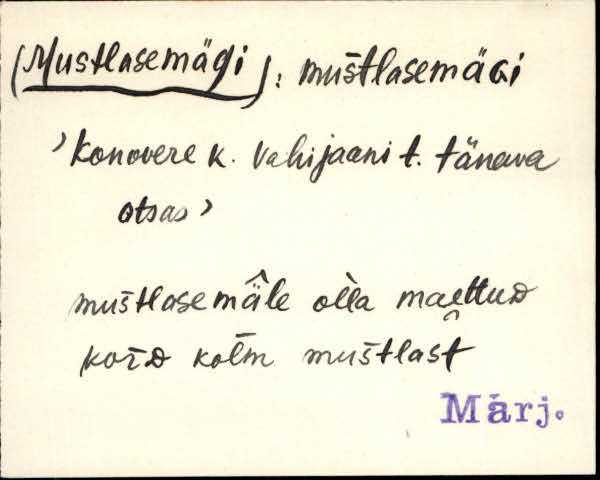 (Mustlasemägi): muštlasemäGi
’Konovere k. Vahijaani t. tänava
otsas’
muštlasemä̂le ol̀la maettuD
korD kolm muštlast
Märj.